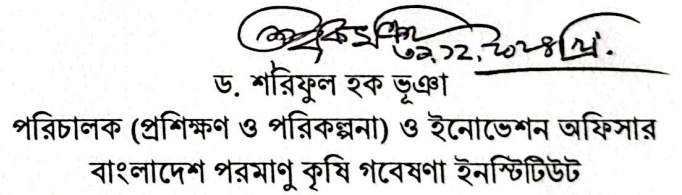 ৩১.১২.২০২৪ খ্রি.
ড. শরিফুল হক ভূঞা
পরিচালক (প্রশিক্ষণ ও পরিকল্পনা) ও ইনোভেশন অফিসার
বাংলাদেশ পরমাণু কৃষি গবেষণা ইনস্টিটিউট